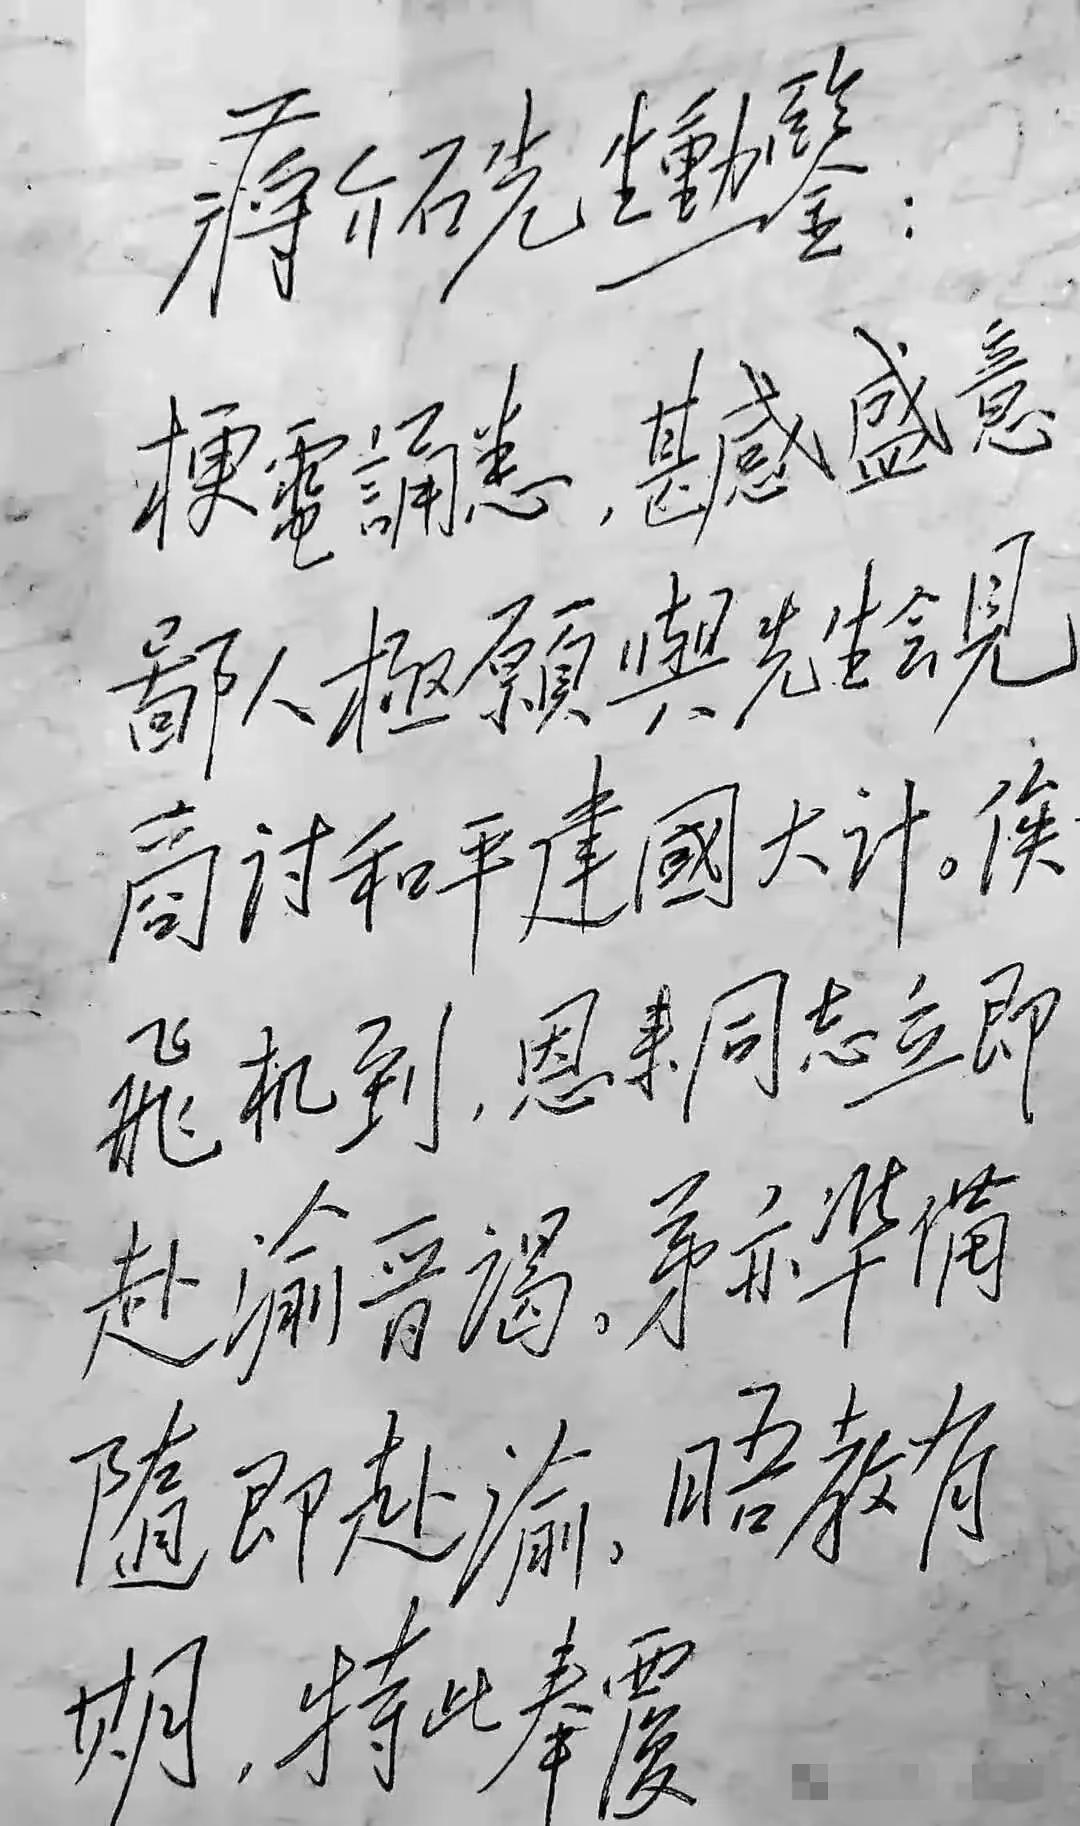 蔣介石先生勳鑒：
梗電誦悉，甚感盛意
鄙人極願與先生会見
商討和平建國大计。俟
飛机到，恩来同志立即
赴渝晉謁。弟亦準備
隨即赴渝。晤教有
期，特此奉覆